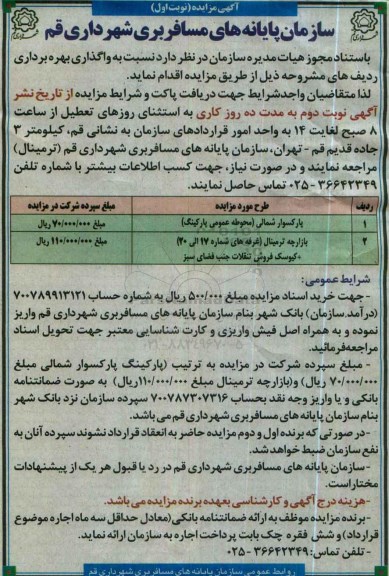 آگهی مزایده (نوبت اول)
سازمان پایانه های مسافربری شهرداری قم
باستناد مجوز هیات مدیره سازمان در نظر دارد نسبت به واگذاری بهره برداری
ردیف های مشروحه ذیل از طریق مزایده اقدام نماید.
لذا متقاضیان واجد شرایط جهت دریافت پاکت و شرایط مزایده از تاریخ نشر
آگهی نوبت دوم به مدت ده روز کاری به استثنای روزهای تعطیل از ساعت
۸ صبح لغایت ۱۴ به واحد امور قراردادهای سازمان به نشانی قم، کیلومتر ۳
جاده قدیم قم - تهران، سازمان پایانه های مسافربری شهرداری قم (ترمینال)
مراجعه نمایند و در صورت نیاز، جهت کسب اطلاعات بیشتر با شماره تلفن
۳۶۶۴۲۳۴۹-۰۲۵ تماس حاصل نمایند.
ردیف طرح مورد مزایده مبلغ سپرده شرکت در مزایده
۱ پارکسوار شمالی (محوطه عمومی پارکینگ) مبلغ ۷۰/۰۰۰/۰۰۰ ریال
۲ بازارچه ترمینال (غرفه های شماره ۱۷ الی ۲۰) مبلغ ۱۱۰/۰۰۰/۰۰۰ ریال
+کیوسک فروش تنقلات جنب فضای سبز
شرایط عمومی:
-جهت خرید اسناد مزایده مبلغ ۵۰۰/۰۰۰ ریال به شماره حساب ۷۰۰۷۸۹۹۱۳۱۲۱
(درآمد.سازمان) بانک شهر بنام سازمان پایانه های مسافربری شهرداری قم واریز
نموده و به همراه اصل فیش واریزی و کارت شناسایی معتبر جهت تحویل اسناد
مراجعه فرمائید.
- مبلغ سپرده شرکت در مزایده به ترتیب (پارکینگ پارکسوار شمالی مبلغ
۷۰/۰۰۰/۰۰۰ ریال) و(بازارچه ترمینال مبلغ ۱۱۰/۰۰۰/۰۰۰ریال) به صورت ضمانتنامه
بانکی و یا واریز وجه نقد بحساب ۷۰۰۷۸۷۳۰۷۳۱۶ سپرده سازمان نزد بانک شهر
بنام سازمان پایانه های مسافربری شهرداری قم می باشد.
-در صورتی که برنده اول و دوم مزایده حاضر به انعقاد قرارداد نشوند سپرده آنان به
نفع سازمان ضبط خواهد شد.
-سازمان پایانه های مسافربری شهرداری قم در رد یا قبول هر یک از پیشنهادات
مختار است.
-هزینه درج آگهی و کارشناسی بعهده برنده مزایده می باشد.
-برنده مزایده موظف به ارائه ضمانتنامه بانکی (معادل حداقل سه ماه اجاره موضوع
قرارداد) و شش فقره چک بابت پرداخت اجاره به سازمان ارائه نماید.
- تلفن تماس: ۳۶۶۴۲۳۴۹-۰۲۵
روابط عمومی سازمان پایانه های مسافربری شهرداری قم